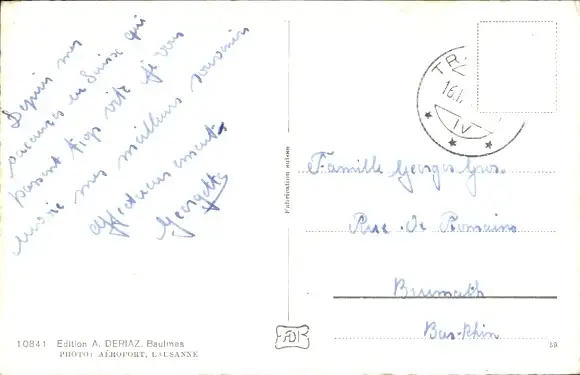 Depuis mes
vacances en Suisse qui
passent trop vite je vous
envoie mes meilleurs souvenirs
affectueusement
Georgette
10841 Edition A. DERIAZ. Baulmes
PHOTO: AÉROPORT, LAUSANNE
Fabrication suisse
TR
16.I
IV
Famille Georges Gros.
Rue de Romains
Brumath
Bas-Rhin
AD